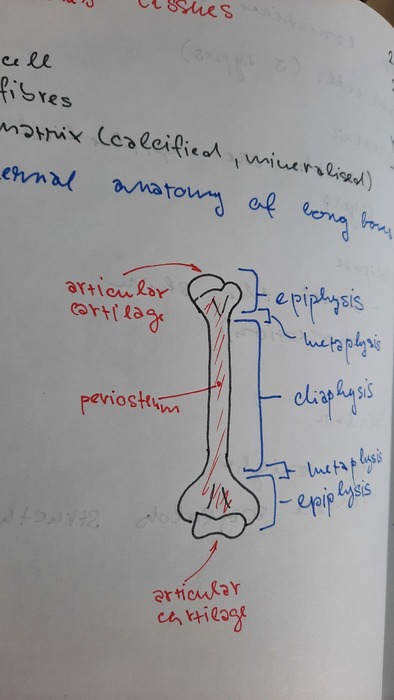 tissues
cell
fibres
matrix (calcified, mineralised)
ernal anatomy of long bon
articular
cartilage
epiphysis
metaplysis
periosteum
diaphysis
metaplysis
epiplysis
articular
cartilage